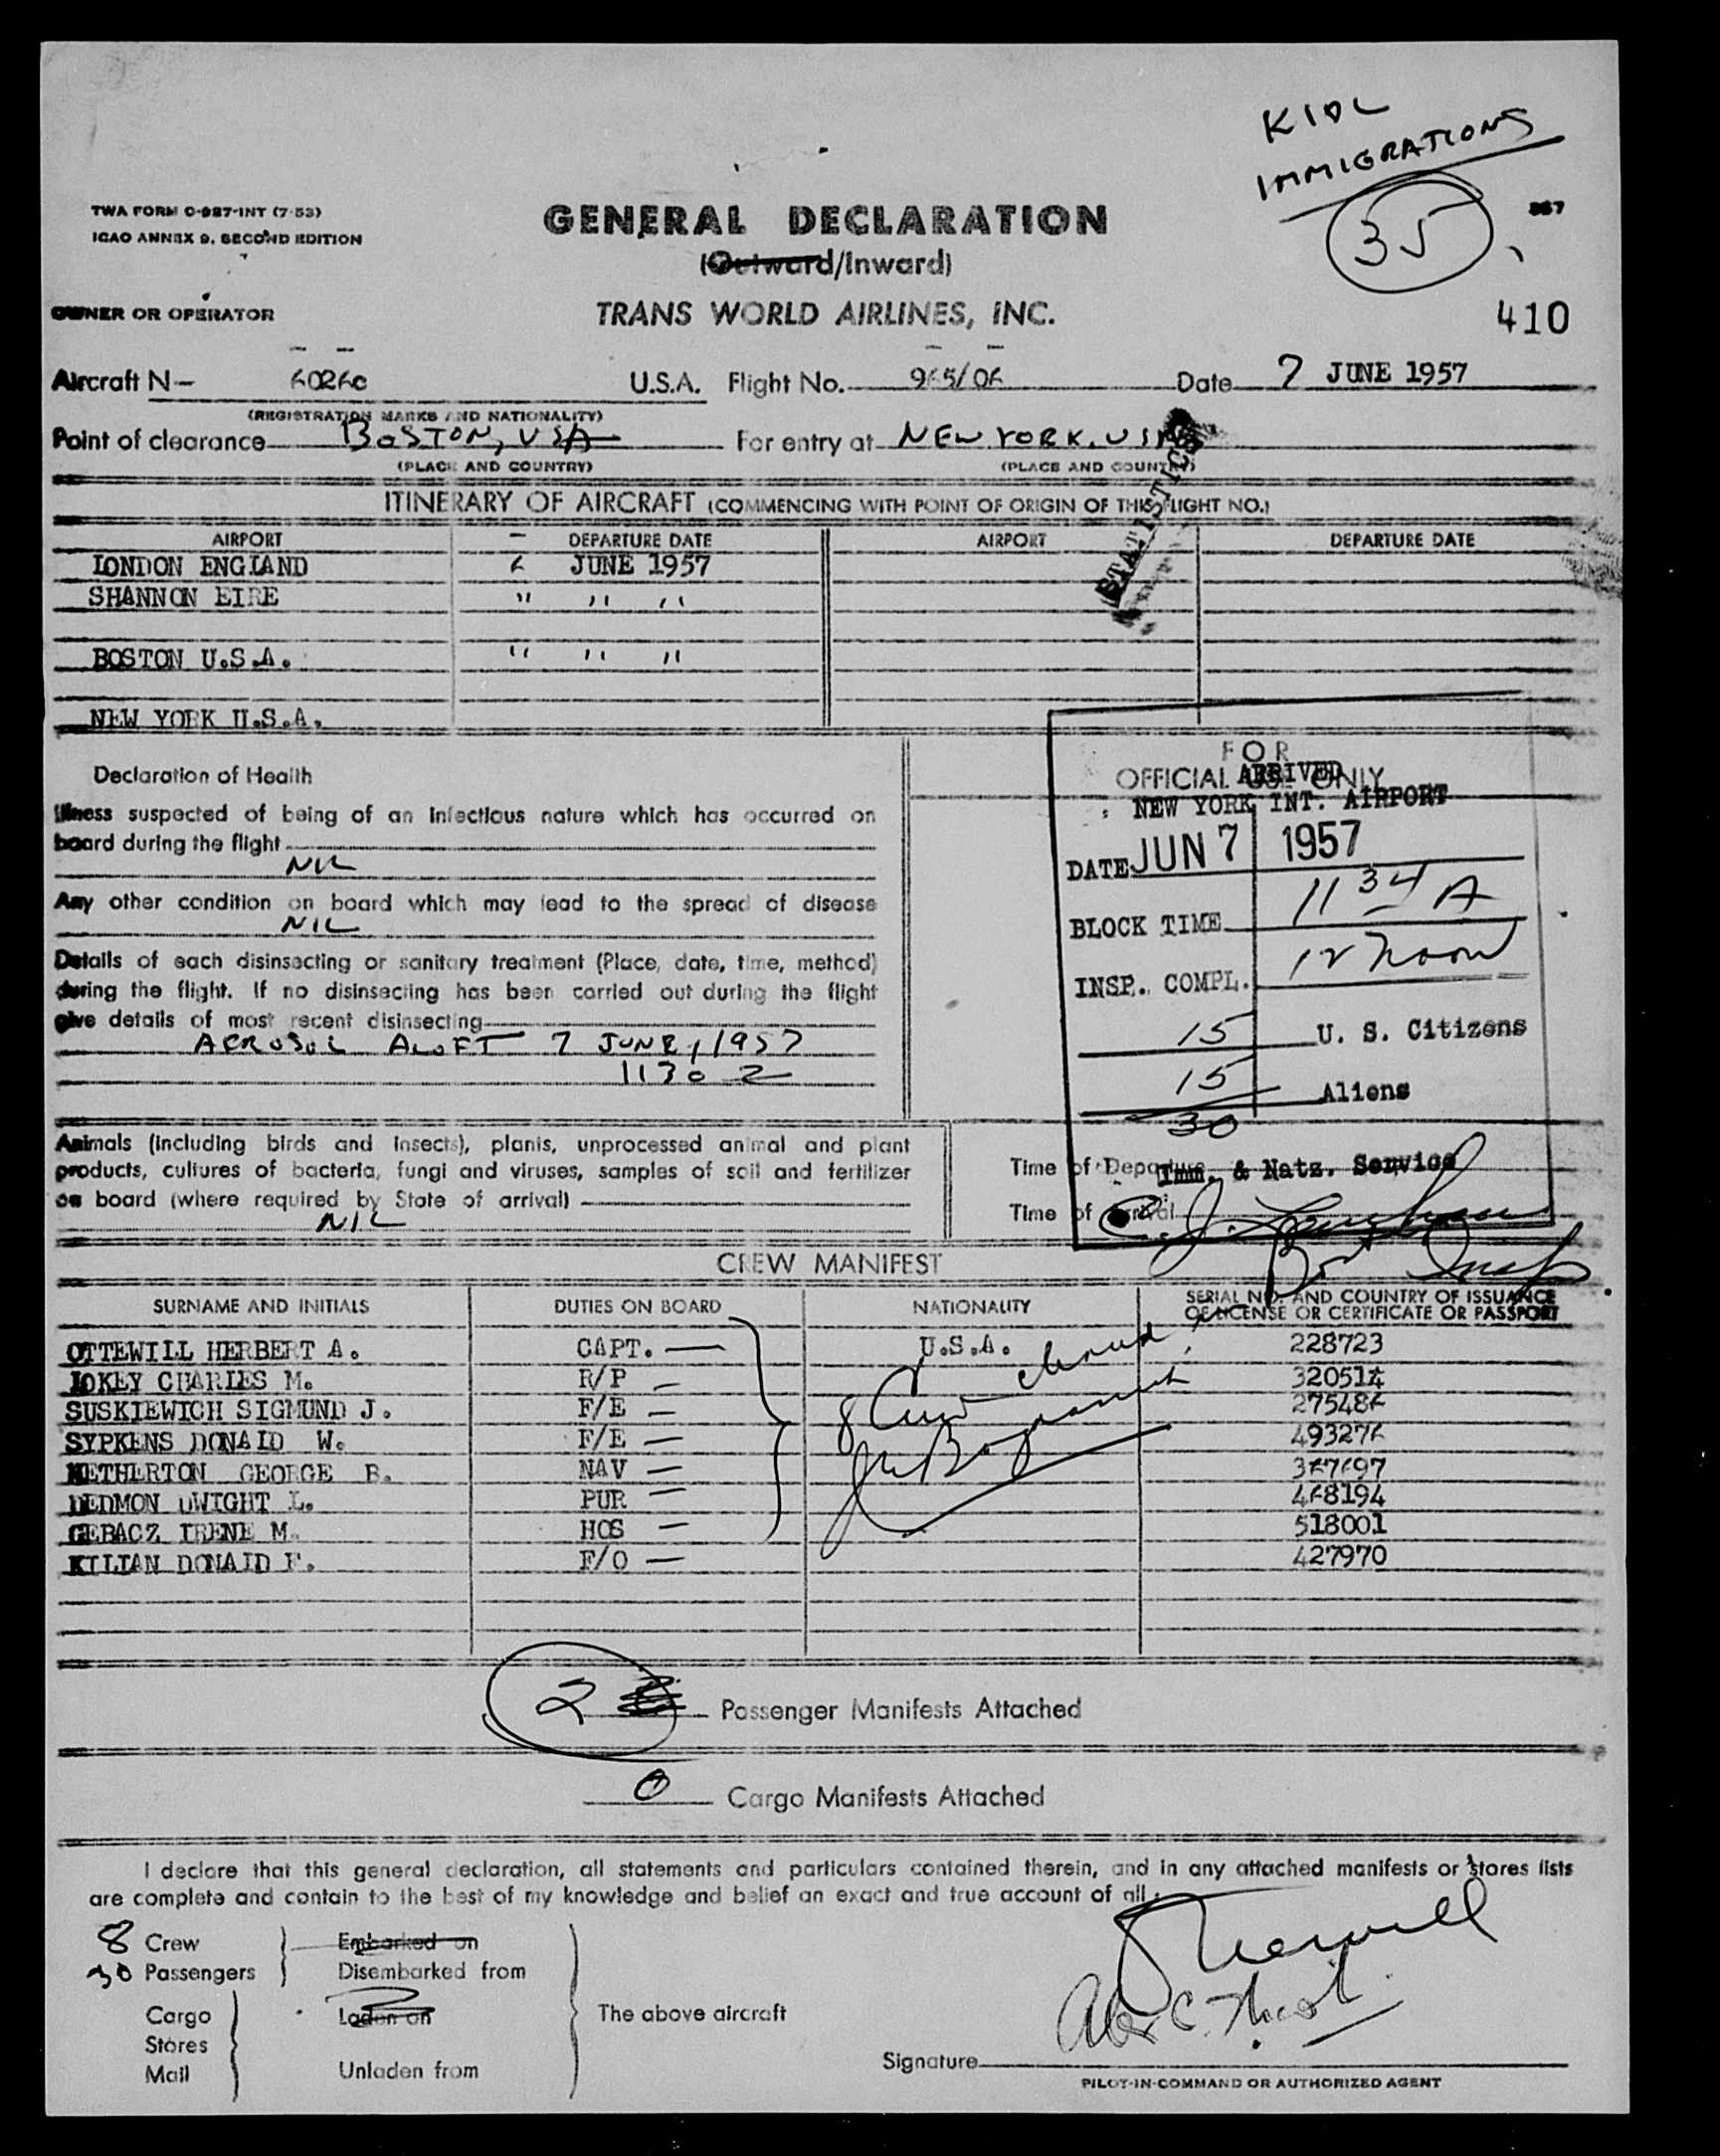 KIDL
IMMIGRATIONS
TWA FORM O-987-INT (7-53)
ICAO ANNEX 9, SECOND EDITION
GENERAL DECLARATION
(Outward/Inward)
35
OWNER OR OPERATOR
TRANS WORLD AIRLINES, INC.
410
Aircraft N— U.S.A. Flight No. Date 7 JUNE 1957
(REGISTRATION MARKS AND NATIONALITY)
Point of clearance BOSTON, USA For entry at NEW YORK, USA
(PLACE AND COUNTRY) (PLACE AND COUNTRY)
STATISTICS
ITINERARY OF AIRCRAFT (COMMENCING WITH POINT OF ORIGIN OF THIS FLIGHT NO.)
AIRPORT DEPARTURE DATE AIRPORT DEPARTURE DATE
LONDON ENGLAND 6 JUNE 1957
SHANNON EIRE " " "
BOSTON U.S.A. " " "
NEW YORK U.S.A.
Declaration of Health
Illness suspected of being of an infectious nature which has occurred on
board during the flight
NIL
Any other condition on board which may lead to the spread of disease
NIL
Details of each disinsecting or sanitary treatment (Place, date, time, method)
during the flight. If no disinsecting has been carried out during the flight
give details of most recent disinsecting
AEROSOL ALOFT 7 JUNE, 1957
1130 Z
FOR
OFFICIAL USE ONLY
ARRIVED
NEW YORK INT. AIRPORT
DATE JUN 7 1957
BLOCK TIME 1134 A
INSP. COMPL. 12 noon
15 U. S. Citizens
15 Aliens
30
Imm. & Natz. Service
Time of Departure
Time of Arrival
Animals (including birds and insects), plants, unprocessed animal and plant
products, cultures of bacteria, fungi and viruses, samples of soil and fertilizer
on board (where required by State of arrival)
NIL
CREW MANIFEST
SURNAME AND INITIALS DUTIES ON BOARD NATIONALITY SERIAL NO. AND COUNTRY OF ISSUANCE
OF LICENSE OR CERTIFICATE OR PASSPORT
OTTEWILL HERBERT A. CAPT. — U.S.A. 228723
LOKEY CHARLES M. R/P — 320514
SUSKIEWICH SIGMUND J. F/E — 275486
SYPKENS DONALD W. F/E — 493276
NETHERTON GEORGE B. NAV — 367697
DEDMON DWIGHT L. PUR — 468194
GEBACZ IRENE M. HOS — 518001
KILIAN DONALD F. F/O — 427970
8 Crew
2 Passenger Manifests Attached
0 Cargo Manifests Attached
I declare that this general declaration, all statements and particulars contained therein, and in any attached manifests or stores lists
are complete and contain to the best of my knowledge and belief an exact and true account of all:
8 Crew Embarked on
30 Passengers Disembarked from
Cargo Laden on The above aircraft
Stores
Mail Unladen from
Signature
PILOT-IN-COMMAND OR AUTHORIZED AGENT